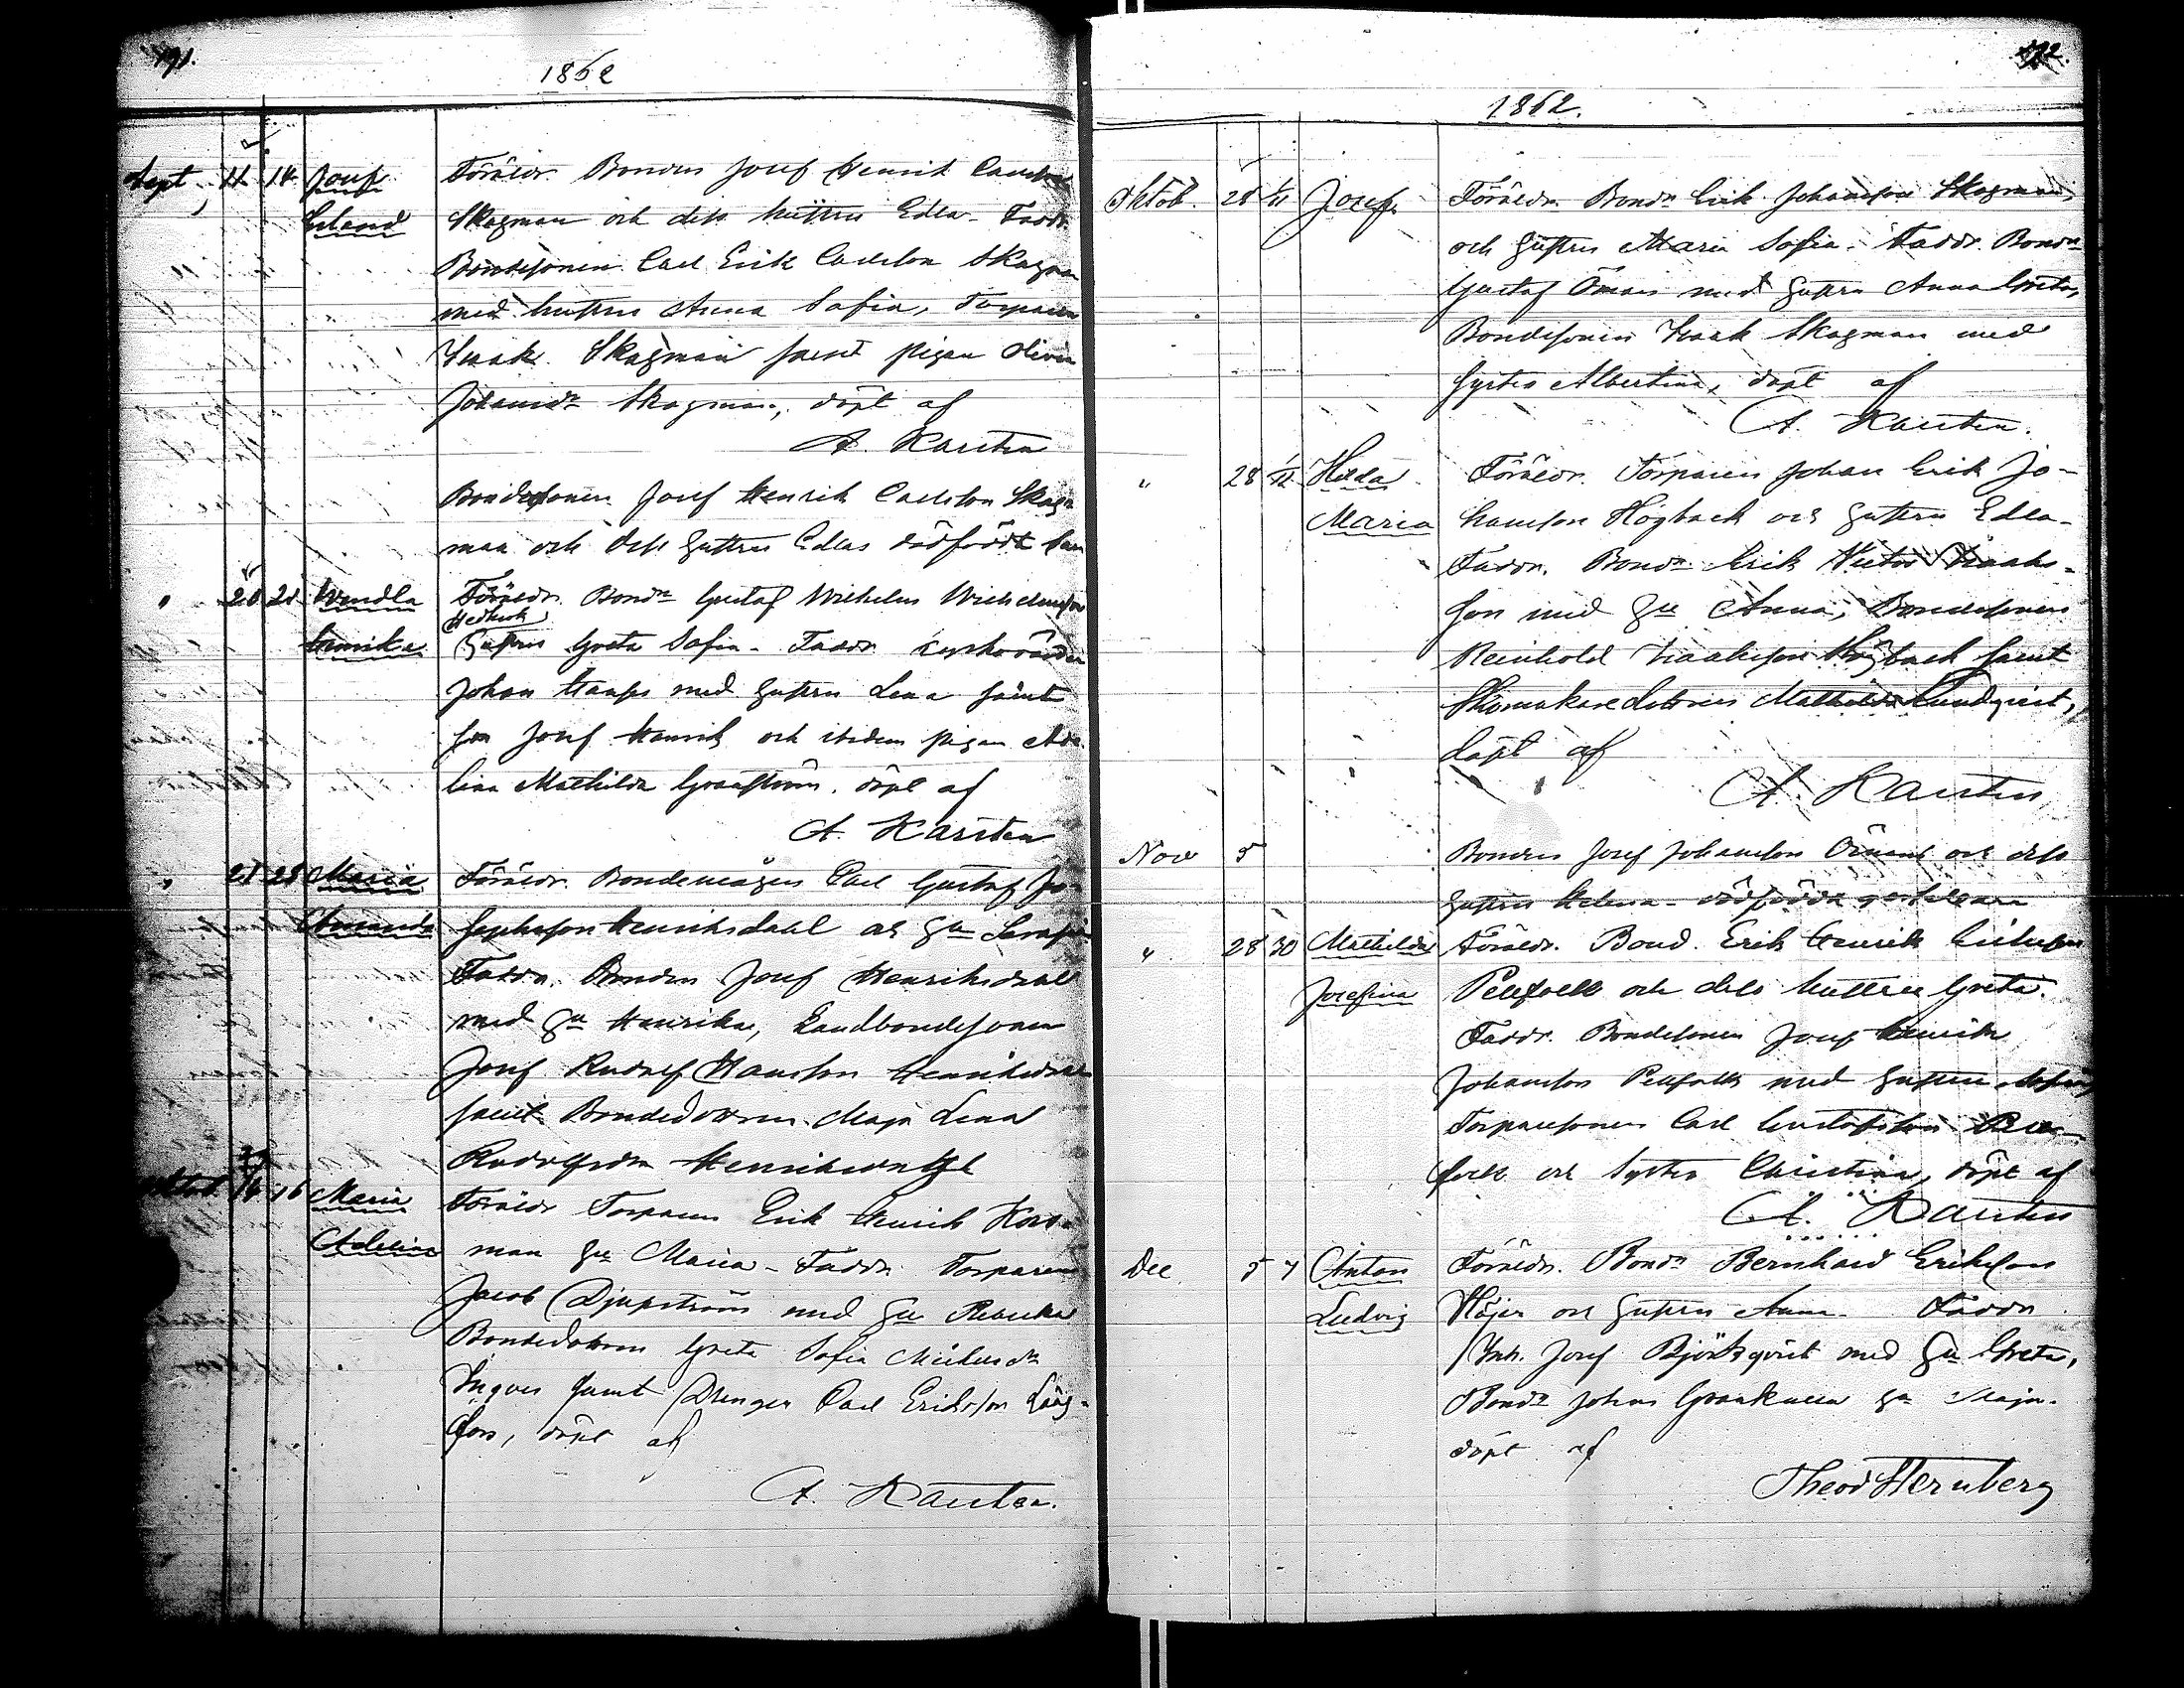 191.
1862
Sept 11 14 Josef Föräldr. Bonden Josef Henrik Carlsson
Erland Skogman och dess hustru Edla. Faddr.
Bondesonen Carl Erik Carlsson Skogman
med hustru Anna Sofia, Torparen
Isaak Skogman samt pigan Olivia
Johansdr Skogman, döpt af
A. Karsten
Bondesonen Josef Henrik Carlsson Skog-
man och dess hustru Edlas dödfödt barn
" 20 21 Wendla Föräldr. Bondn Gustaf Wilhelm Wilhelmsson
Hedkrok
Hustru Greta Sofia. Faddr. Kyrkovärden
Johan med hustru Lena samt
son Josef Henrik och pigan Ade-
lina Mathilda Granström, döpt af
A. Karsten
" 21 28 Maria Föräldr. Bondemågen Carl Gustaf Jo-
Amanda sephsson Henriksdahl och hu Serafia
Faddr. Bonden Josef Henriksdal
med hu Henrika, Landbondesonen
Josef Rudolf Hansson Henriksdal
samt Bondedottren Maja Lena
Rudolfsdr Henriksdahl
Oktob. 14 16 Maria Föräldr Torparen Erik Henrik Kors-
Adelina man hu Maria - Faddr. Torparen
Jacob Djupström med hu Rebecka
Bondedottren Greta Sofia Michelsdr
Ingves samt Drengen Carl Eriksson Lång-
fors, döpt af
A. Karsten.
192.
1862.
Oktob. 28 Josef Föräldr. Bondn Erik Johansson Skogman,
och hustru Maria Sofia. Faddr. Bondn
Gustaf Öman med hustru Anna Greta,
Bondesonen Isaak Skogman med
Syster Albertina, döpt af
A. Karsten.
" 28 Hilda Föräldr. Torparen Johan Erik Jo-
Maria hansson Högback och hustru Edla.
Faddr. Bondn Erik Victor Isaaks-
son med hu Anna, Bondesonen
Reinhold Isaaksson Högback samt
Skomakaredottren Mathilda Lundqvist,
döpt af
A. Karsten
Nov 5 Bonden Josef Johansson Öman och dess
hustru Helena - dödfödda gossebarn
" 28 30 Mathilda Föräldr. Bond. Erik Henrik
Josefina Pellfolk och dess hustru Greta.
Faddr. Bondesonen Josef Henrik
Johansson Pellfolk med hustru Sofia,
Torparesonen Carl Gustafsson Pell-
folk och Syster Christina, döpt af
A. Karsten
Dec 5 7 Anton Föräldr. Bondn Bernhard Eriksson
Ludvig Höjer och hustru Anna. Faddr
Inh. Josef Björkqvist med hu Greta,
Bondn Johan Grankulla hu Maja.
döpt af
Theod Sternberg